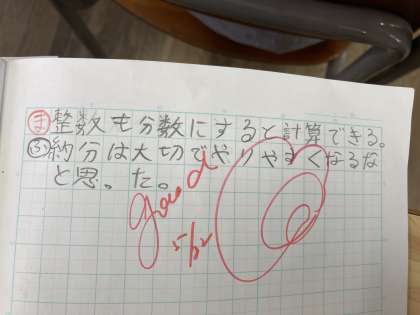 ま整数も分数にすると計算できる。
ふ約分は大切でやりやすくなるな
と思。た。
good
5/32